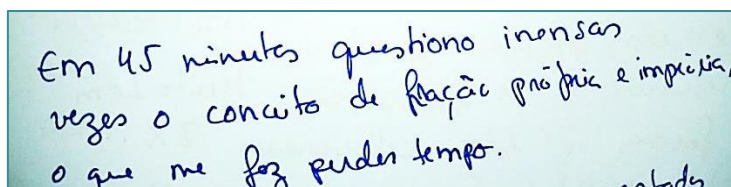 Em 45 minutos questiono imensas
vezes o conceito de fração própria e imprópria,
o que me faz perder tempo.